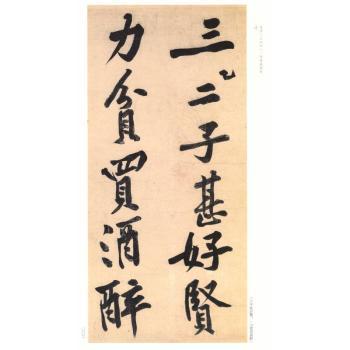 三二子甚好賢
力貧買酒醉